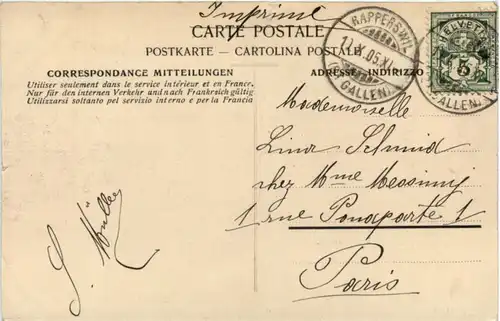 Imprimé
CARTE POSTALE
POSTKARTE - CARTOLINA POSTALE
CORRESPONDANCE MITTEILUNGEN
Utiliser seulement dans le service intérieur et en France.
Nur für den internen Verkehr und nach Frankreich gültig
Utilizzarsi soltanto pel servizio interno e per la Francia
ADRESSE INDIRIZZO
RAPPERSWIL
05.XI
GALLEN
HELVETIA
5
GALLEN
Mademoiselle
Lina Schmid
chez Mme
1 rue Bonaparte 1
Paris
S. Müller